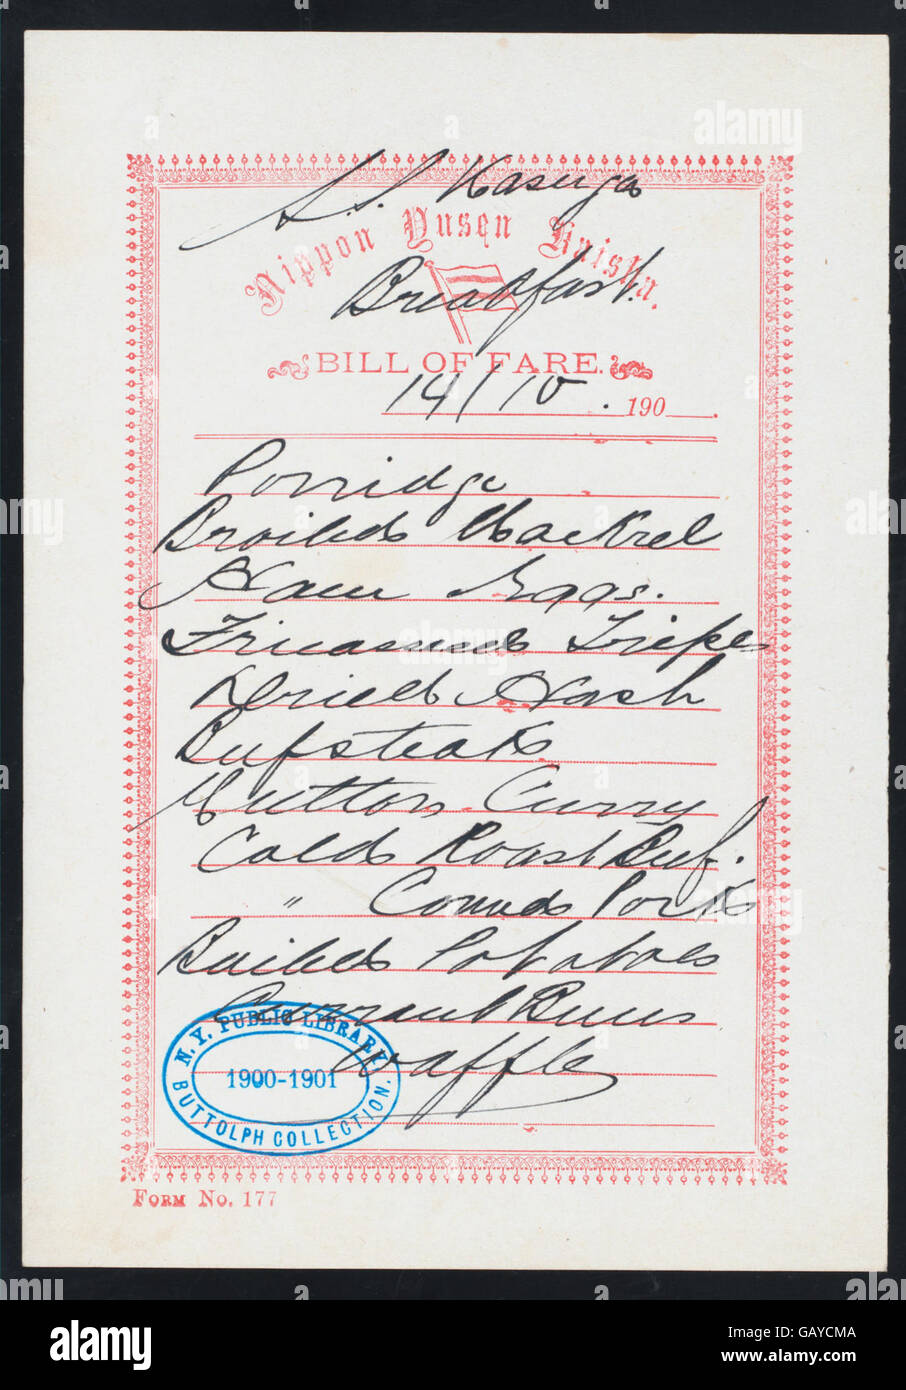 S.S. Kasuga
Nippon Yusen Kaisha.
Breakfast.
BILL OF FARE.
14/10 . 190 .
Porridge
Broiled Mackrel
Ham Eggs.
Fricasseed Tripe
Dried Hash
Beefsteak
Mutton Curry
Cold Roast Beef.
" Corned Pork
Boiled Potatoes
Currant Buns
Waffle
N.Y. PUBLIC LIBRARY
1900-1901
BUTTOLPH COLLECTION.
FORM No. 177
alamy
alamy
alamy
alamy
alamy
alamy
Image ID: GAYCMA
www.alamy.com